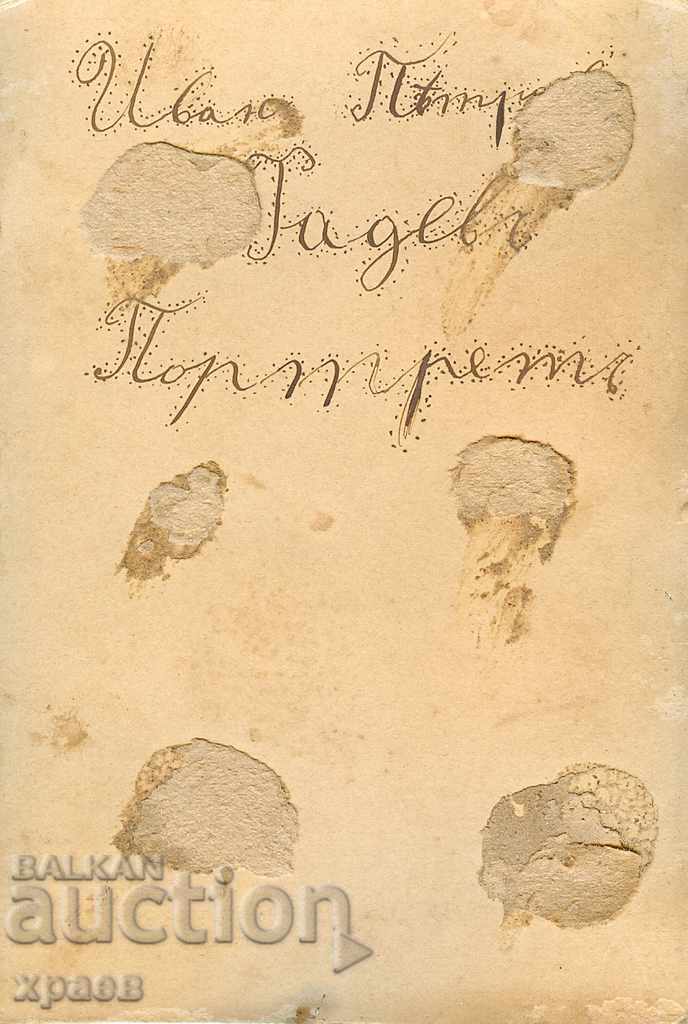 Иван
Гадевъ
Портретъ
BALKAN
auction
храов